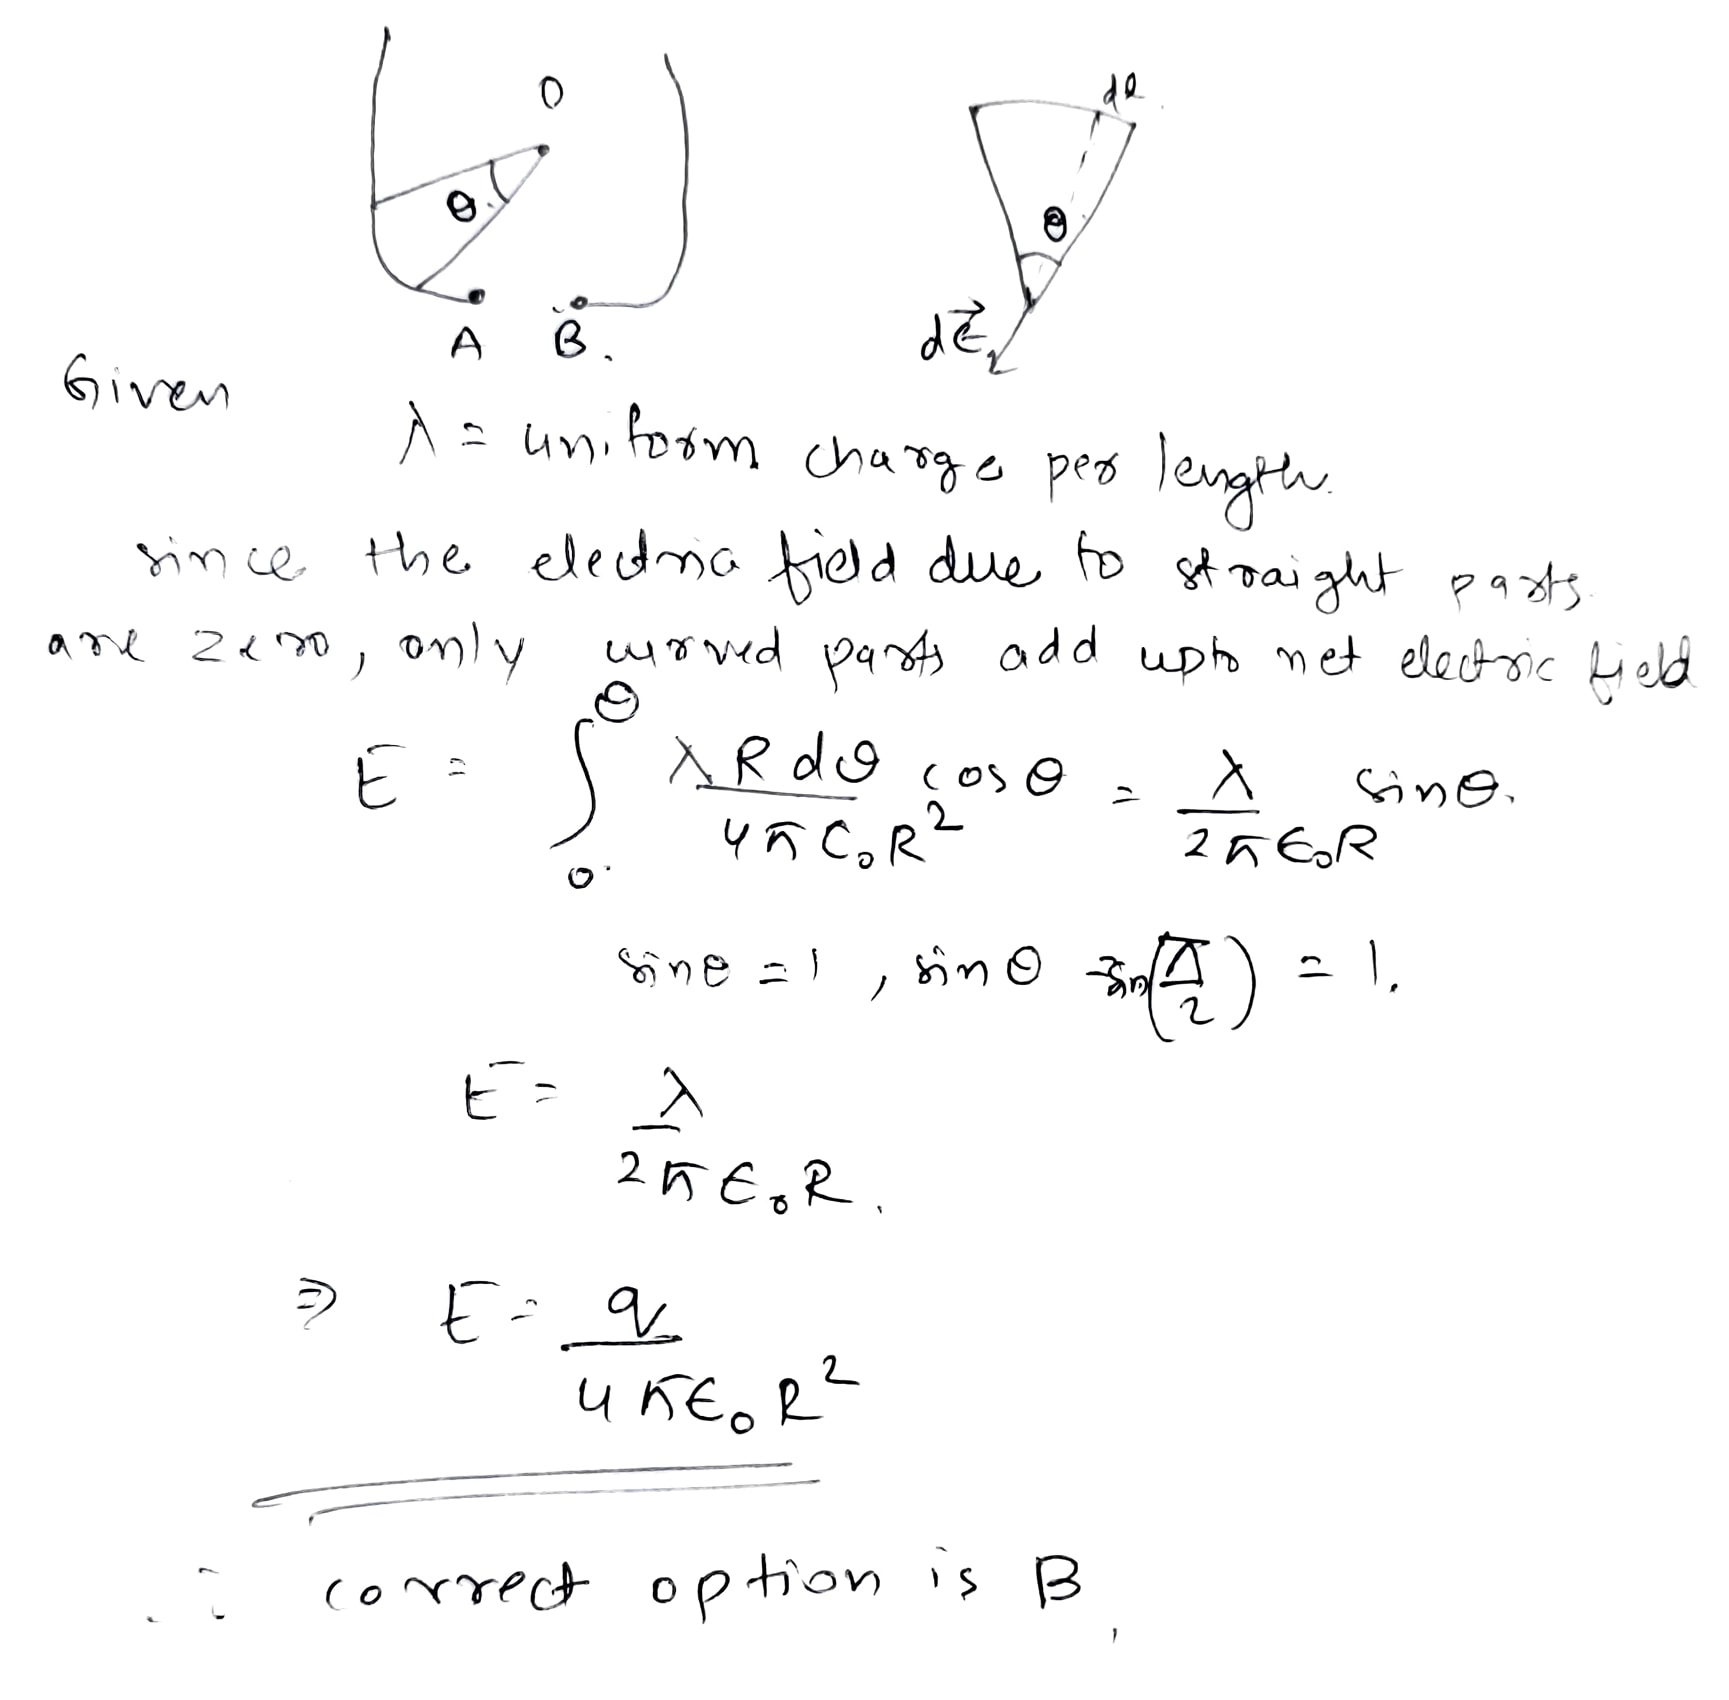 O
dl
θ
θ
dE⃗
A B.
Given
λ = uniform charge per length.
since the electric field due to straight parts
are zero, only curved parts add upto net electric field
E = ∫₀^θ λRdθ/4πϵ₀R² cosθ = λ/2πϵ₀R sinθ.
sinθ = 1, sinθ = sin(π/2) = 1.
E = λ/2πϵ₀R.
⇒ E = q/4πϵ₀R²
∴ correct option is B,